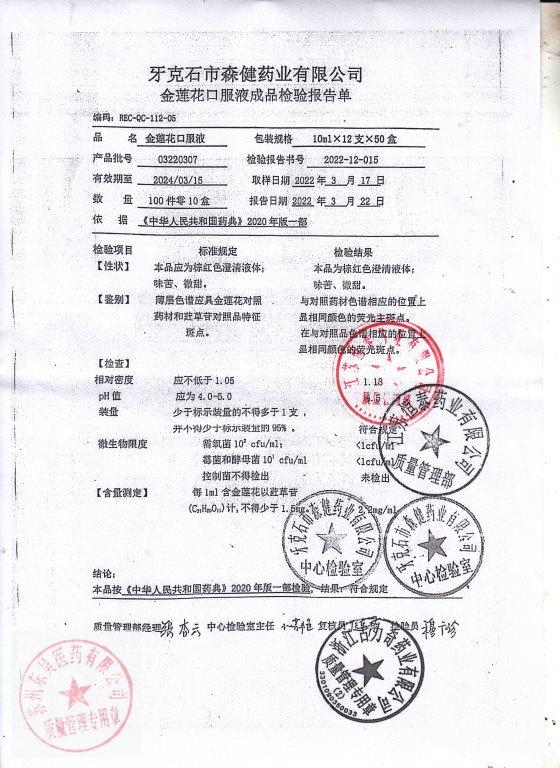 牙克石市森健药业有限公司
金莲花口服液成品检验报告单
编码: REC-QC-112-05
品 名 金莲花口服液 包装规格 10ml×12支×50盒
产品批号 03220307 检验报告书号 2022-12-015
有效期至 2024/03/15 取样日期 2022 年 3 月 17 日
数 量 100件零10盒 报告日期 2022 年 3 月 22 日
依 据 《中华人民共和国药典》2020年版一部
检验项目 标准规定 检验结果
【性状】 本品应为棕红色澄清液体; 本品为棕红色澄清液体;
味苦、微甜。 味苦、微甜。
【鉴别】 薄层色谱应具金莲花对照 与对照药材色谱相应的位置上
药材和荭草苷对照品特征 显相同颜色的荧光主斑点。
斑点。 在与对照品色谱相应的位置上
显相同颜色的荧光斑点。
【检查】
相对密度 应不低于1.05 1.13
pH值 应为4.0-6.0
装量 少于标示装量的不得多于1支,
并不得少于标示装量的95%。 符合规定
微生物限度 需氧菌10² cfu/ml; <1cfu/ml
霉菌和酵母菌10¹ cfu/ml <1cfu/ml
控制菌不得检出 未检出
【含量测定】 每1ml含金莲花以荭草苷
(C₂₁H₂₀O₁₁)计,不得少于1.5mg。 2.2mg/ml
结论:
本品按《中华人民共和国药典》2020年版一部检验,结果: 符合规定
质量管理部经理 中心检验室主任 复核员 检验员
江苏恒意药业有限公司
质量管理部
牙克石市森健药业有限公司
中心检验室
牙克石市森健药业有限公司
中心检验室
浙江古方奇药业有限公司
质量管理专用章
(2)
3301060350033
苏州东吴医药有限公司
质量管理专用章